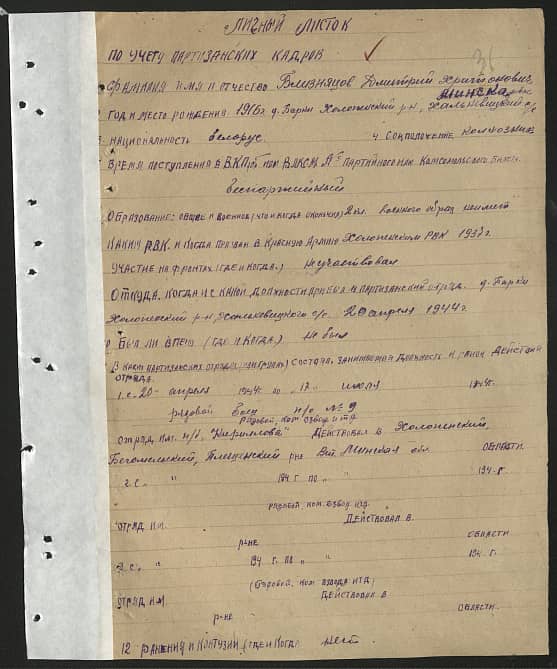 ЛИЧНЫЙ ЛИСТОК
ПО УЧЕТУ ПАРТИЗАНСКИХ КАДРОВ
ФАМИЛИЯ ИМЯ И ОТЧЕСТВО Близняцов Дмитрий Харитонович
Минская обл
ГОД И МЕСТО РОЖДЕНИЯ 1916г д. Барки Холопеничский р-н,
3. НАЦИОНАЛЬНОСТЬ белорус. 4 СОЦПОЛОЖЕНИЕ колхозник
ВРЕМЯ ПОСТУПЛЕНИЯ В ВКП(б) ИЛИ ВЛКСМ № ПАРТИЙНОГО ИЛИ КОМСОМОЛЬСКОГО БИЛЕТА
беспартийный
ОБРАЗОВАНИЕ: ОБЩЕЕ И ВОЕННОЕ (ЧТО И КОГДА ОКОНЧИЛ) 2 кл. военного образ. не имеет
КАКИМ РВК. И КОГДА ПРИЗВАН В КРАСНУЮ АРМИЮ Холопеничским РВК 193
УЧАСТИЕ НА ФРОНТАХ (ГДЕ И КОГДА.) не участвовал
ОТКУДА, КОГДА И С КАКОЙ ДОЛЖНОСТИ ПРИБЫЛ В ПАРТИЗАНСКИЙ ОТРЯД. д. Барки
Холопеничский р-н, с/с. 20 апреля 1944г.
БЫЛ ЛИ В ПЛЕНУ (ГДЕ И КОГДА.) не был
В КАКИХ ПАРТИЗАНСКИХ ОТРЯДАХ, СОСТОЯЛ, ЗАНИМАЕМАЯ ДОЛЖНОСТЬ И РАЙОН ДЕЙСТВИЙ
ОТРЯДА.
1. С. 20 апреля 1944г. ПО 17 июля 194г.
рядовой боец п/о № 9
РЯДОВОЙ, КОМ. ВЗВОД И ТД
ОТРЯД ИМ. п/б. "Кириллова" ДЕЙСТВОВАЛ В Холопеничский,
Бегомльский, Плещенский РНЕ Минская обл. ОБЛАСТИ
2. С. " 194 Г. ПО " 194. Г.
РЯДОВОЙ, КОМ. ВЗВОД. ИТД.
ОТРЯД ИМ. ДЕЙСТВОВАЛ В.
РНЕ ОБЛАСТИ
С. " 194 Г. ПО " 194. Г.
(РЯДОВОЙ, КОМ ВЗВОДА ИТД)
ОТРЯД ИМ ДЕЙСТВОВАЛ В
РНЕ ОБЛАСТИ.
12 РАНЕНИЯ И КОНТУЗИИ (ГДЕ И КОГДА) нет.